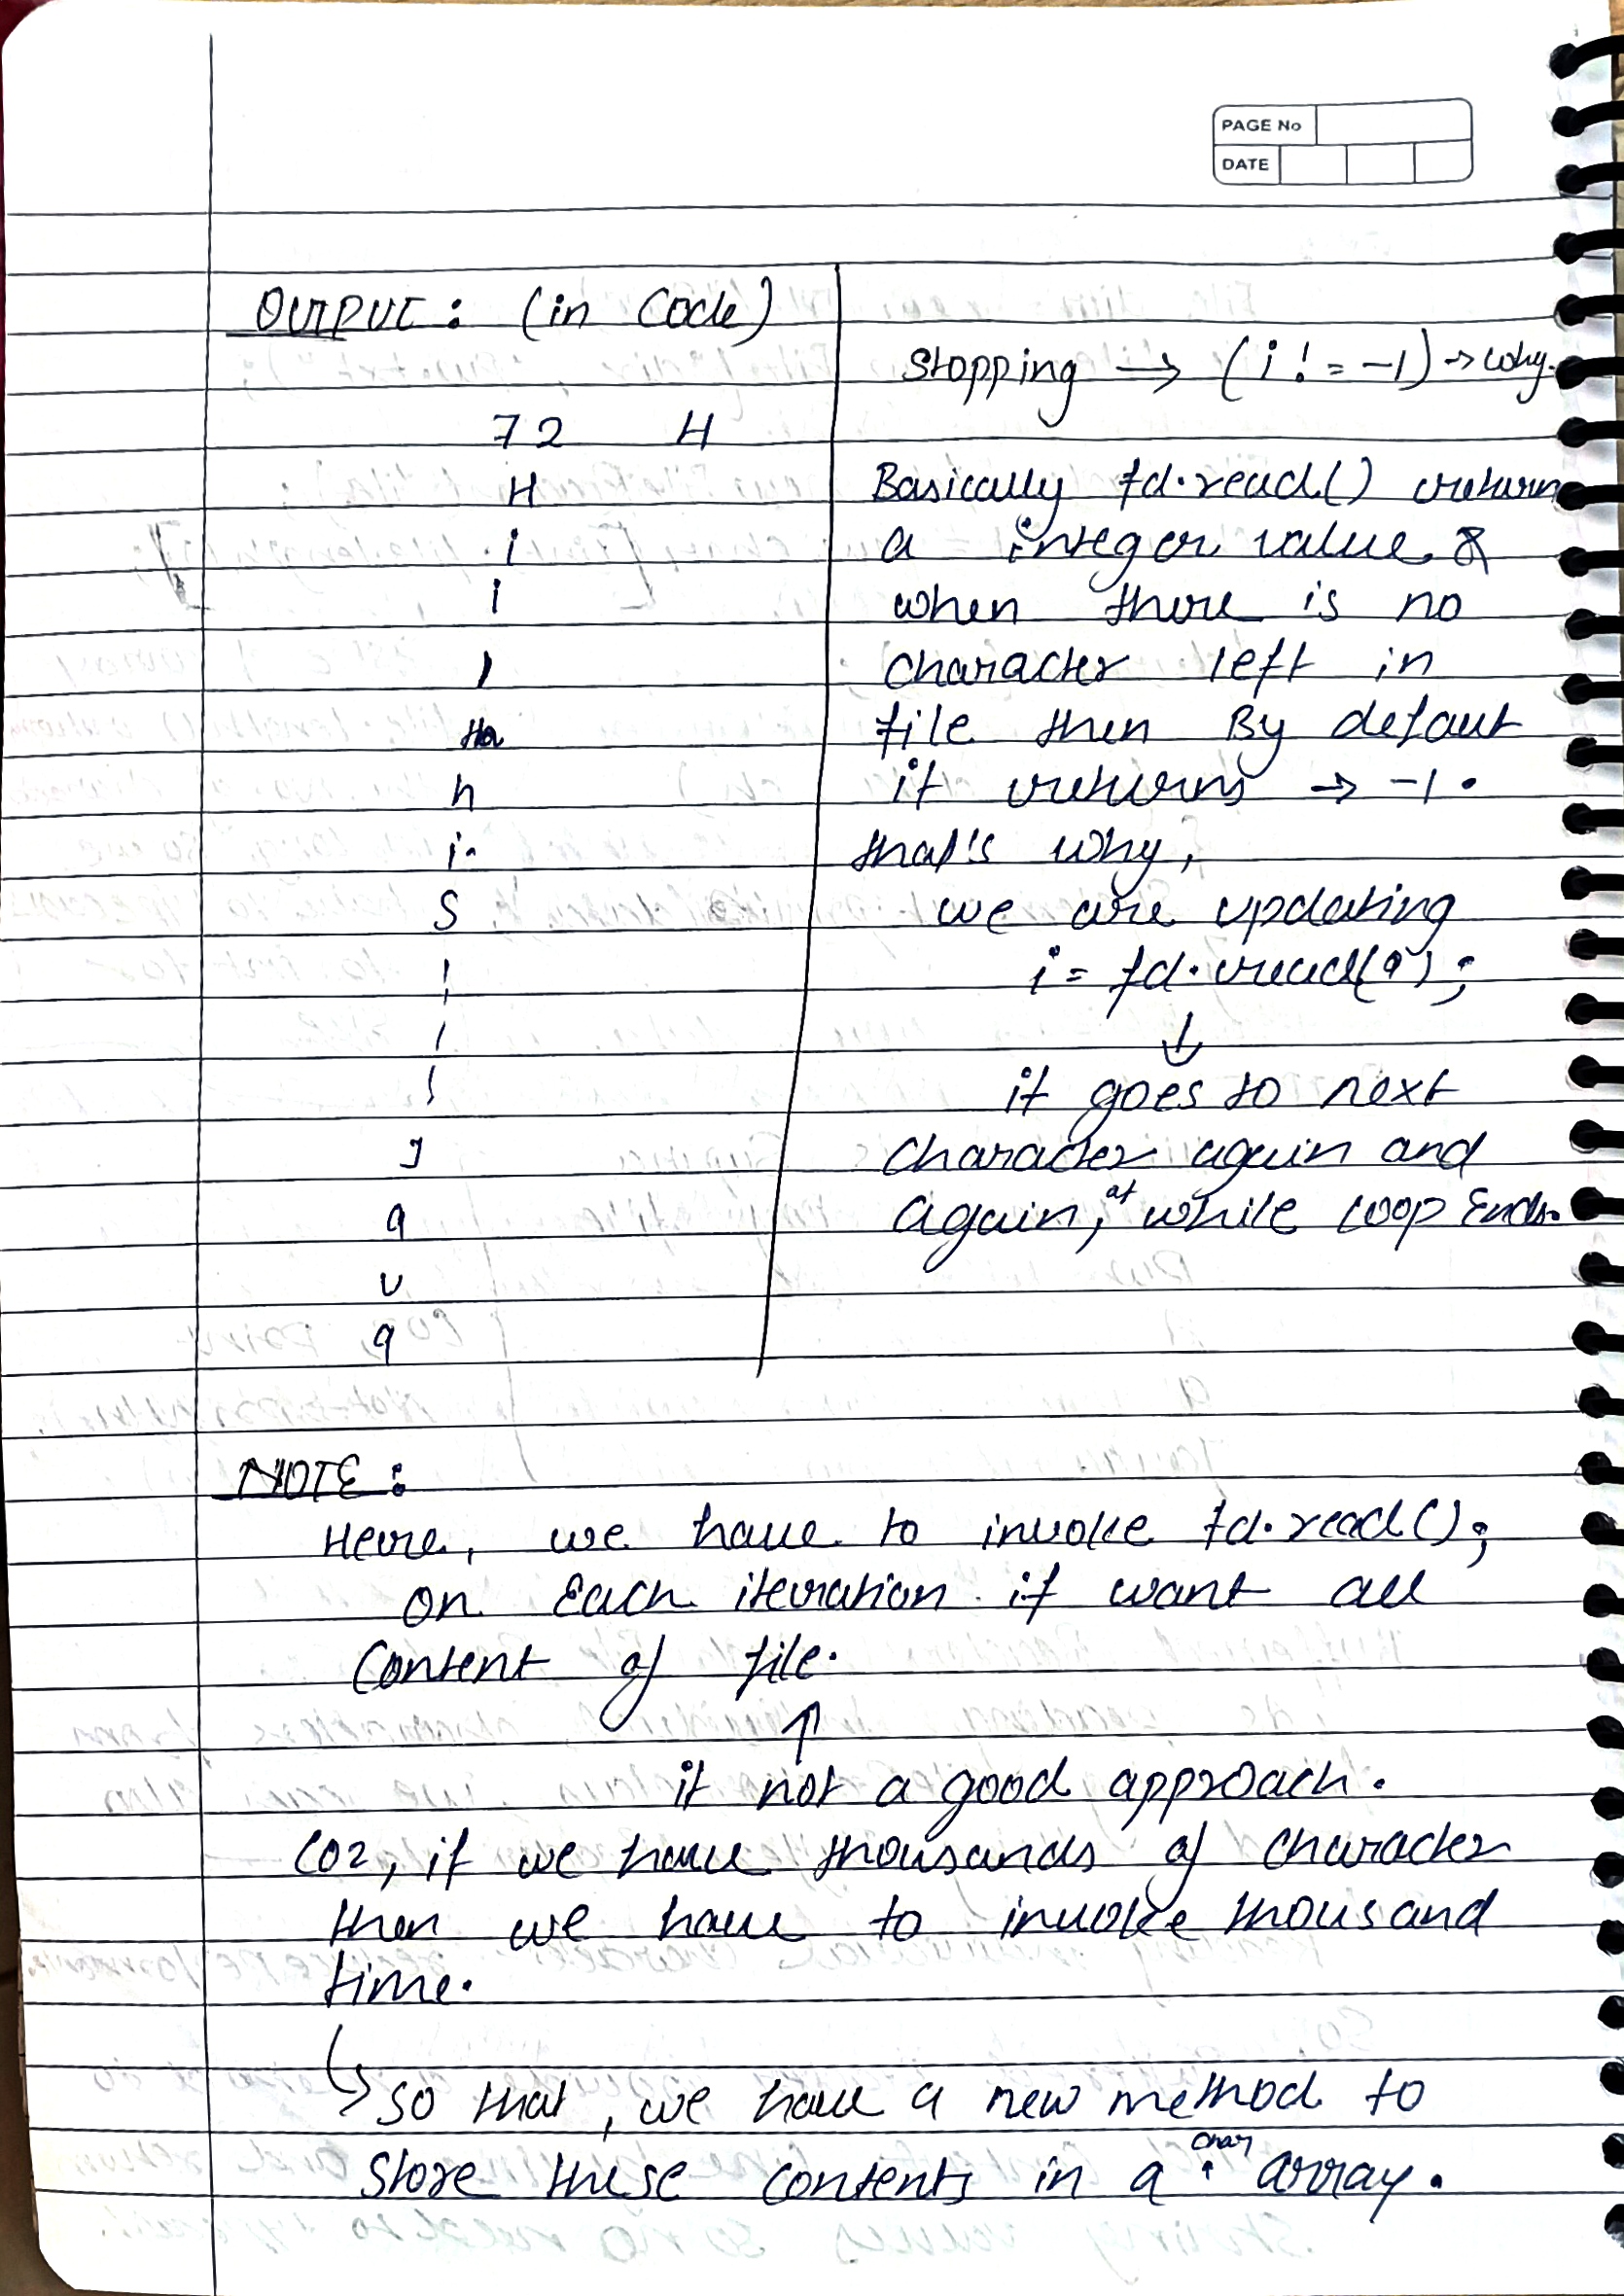 PAGE No
DATE
OUTPUT : (in Code)
72 H
H
i
|
|
h
i
S
|
|
|
J
a
v
a
Stopping → (i != -1) → why.
Basically fd.read() return
a integer value &
when there is no
character left in
file then By defaut
it returns → -1.
that's why,
we are updating
i = fd.read();
↓
it goes to next
character again and
again, at while loop Ends.
NOTE :
Here, we have to invoke fd.read();
on Each iteration if want all
Content of file.
↑
it not a good approach.
COZ, if we have thousands of character
then we have to invoke thousand
time.
↳ so that, we have a new method to
Store these contents in a char array.